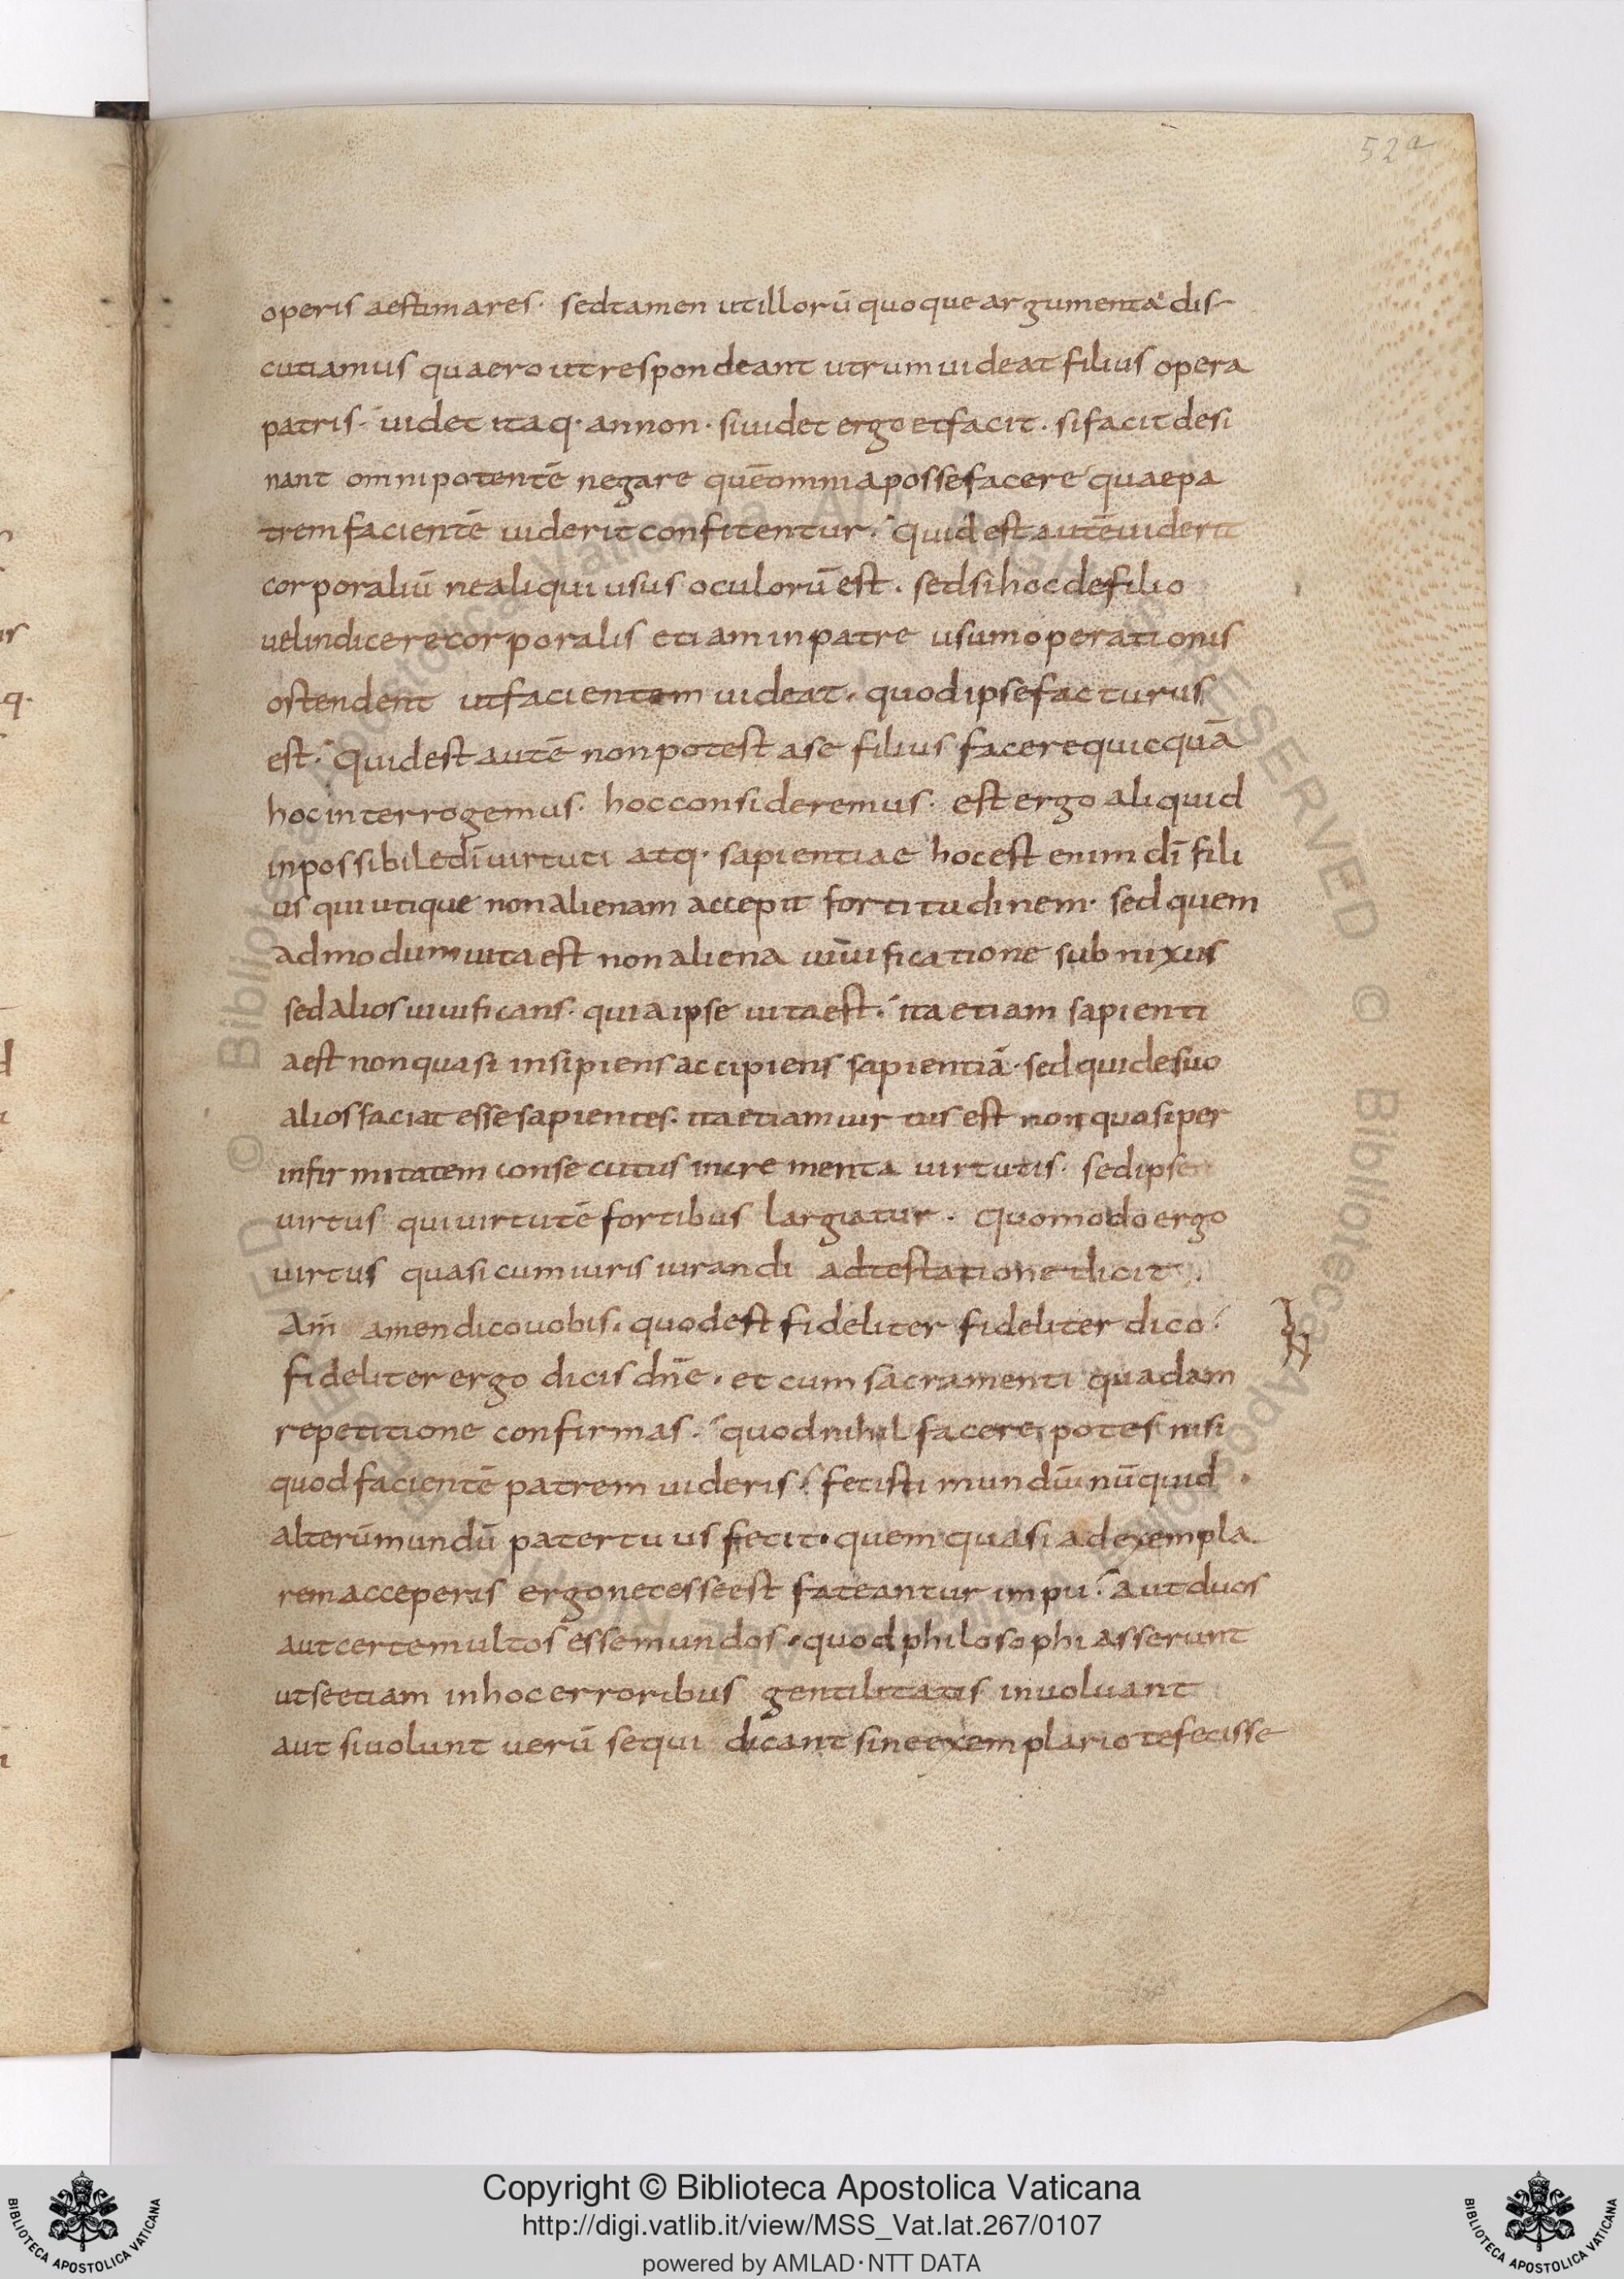 52a
operis aestimares· sed tamen ut illorū quoque argumenta dis
cutiamus quaero ut respondeant utrum uideat filius opera
patris· uidet itaq· an non· si uidet ergo et facit· si facit desi
nant omnipotentē negare quē omnia posse facere quae pa
trem facientē uiderit confitentur· Quid est autē uiderit
corporaliū ne aliqui usus oculorū est· sed si hoc de filio
uelin dicere corporalis etiam in patre usum operationis
ostendent ut facientem uideat· quod ipse facturus
est· Quid est autē non potest a se filius facere quicquā
hoc interrogemus· hoc consideremus· est ergo aliquid
inpossibile dī uirtuti atq· sapientiae hoc est enim dī fili
us qui utique non alienam accepit fortitudinem· sed quem
admodum uita est non aliena uiuificatione subnixus
sed alios uiuificans· quia ipse uita est· ita etiam sapienti
a est non quasi insipiens accipiens sapientiā· sed qui de suo
alios faciat esse sapientes· ita etiam uirtus est non quasi per
infirmitatem consecutus incrementa uirtutis· sed ipse
uirtus qui uirtutē fortibus largiatur· Quomodo ergo
uirtus quasi cum iuris iurandi adtestatione dicit
Am̄ amen dico uobis· quod est fideliter fideliter dico
fideliter ergo dicis dn̄e· et cum sacramenti quadam
repetitione confirmas· quod nihil facere potes nisi
quod facientē patrem uideris· fecisti mundū nūquid
alterū mundū pater tuus fecit· quem quasi ad exempla
rem acceperis ergo necesse est fateantur impii· aut duos
aut certe multos esse mundos· quod philosophi asserunt
ut se etiam in hoc erroribus gentilitatis inuoluant
aut si uolunt uerū sequi dicant sine exemplario te fecisse
Copyright © Biblioteca Apostolica Vaticana
http://digi.vatlib.it/view/MSS_Vat.lat.267/0107
powered by AMLAD·NTT DATA
BIBLIOTECA APOSTOLICA VATICANA
BIBLIOTECA APOSTOLICA VATICANA